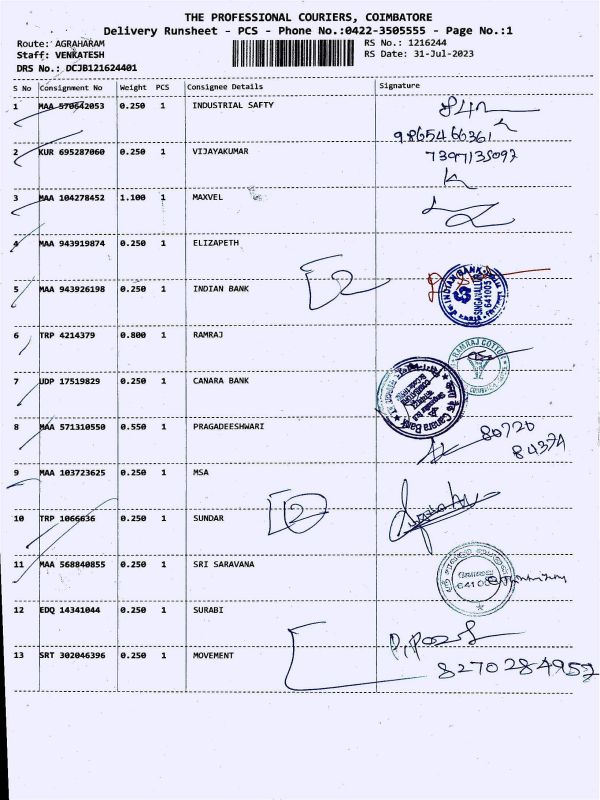 THE PROFESSIONAL COURIERS, COIMBATORE
Delivery Runsheet - PCS - Phone No.:0422-3505555 - Page No.:1
Route: AGRAHARAM RS No.: 1216244
Staff: VENKATESH RS Date: 31-Jul-2023
DRS No.: DCJB121624401
S No Consignment No Weight PCS Consignee Details Signature
1 MAA 570642053 0.250 1 INDUSTRIAL SAFTY
9865466361
2 KUR 695287060 0.250 1 VIJAYAKUMAR 7397135092
3 MAA 104278452 1.100 1 MAXVEL
4 MAA 943919874 0.250 1 ELIZAPETH
5 MAA 943926198 0.250 1 INDIAN BANK INDIAN BANK 641005
6 TRP 4214379 0.800 1 RAMRAJ RAMRAJ COTTON
7 UDP 17519829 0.250 1 CANARA BANK Canara Bank
8 MAA 571310550 0.550 1 PRAGADEESHWARI 80720
84374
9 MAA 103723625 0.250 1 MSA
10 TRP 1066636 0.250 1 SUNDAR
11 MAA 568840855 0.250 1 SRI SARAVANA
12 EDQ 14341044 0.250 1 SURABI
13 SRT 302046396 0.250 1 MOVEMENT 8270284952